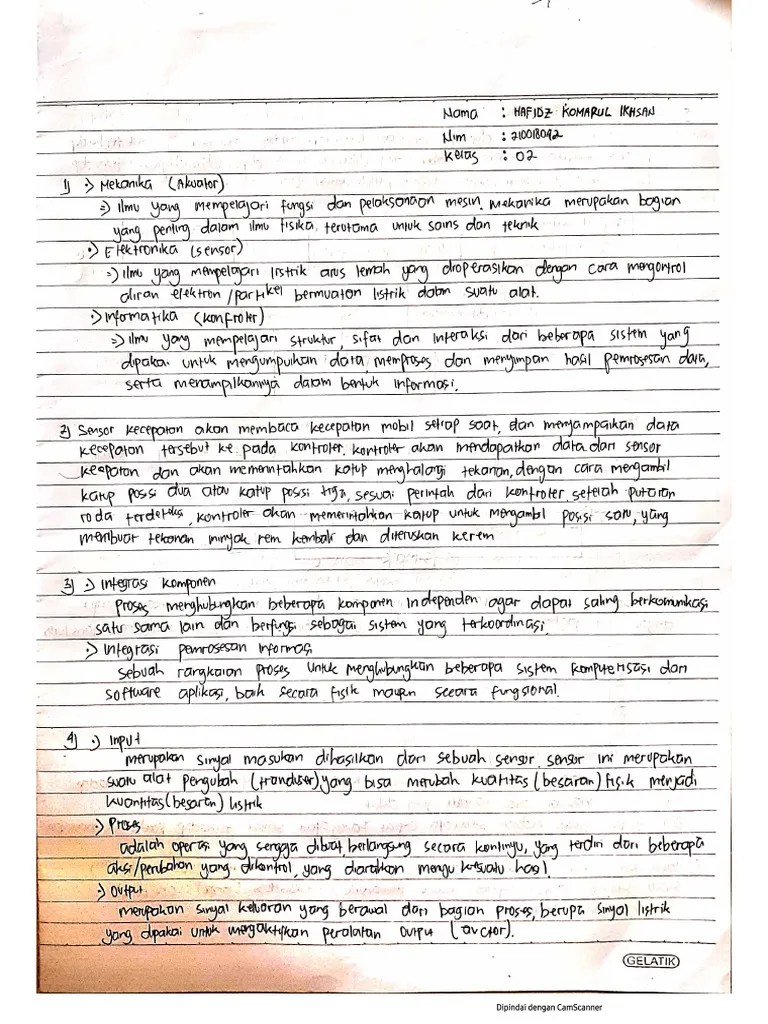 Nama : HAFIDZ KOMARUL IKHSAN
Nim : 210018092
Kelas : 02
1) •) Mekanika (Akuator)
=) Ilmu yang mempelajari fungsi dan pelaksanaan mesin. Mekanika merupakan bagian
yang penting dalam ilmu fisika, terutama untuk sains dan teknik
•) Elektronika (sensor)
=) Ilmu yang mempelajari listrik arus lemah yang dioperasikan dengan cara mengontrol
aliran elektron / partikel bermuatan listrik dalam suatu alat.
•) Informatika (kontroler)
=) Ilmu yang mempelajari struktur, sifat dan interaksi dari beberapa sistem yang
dipakai untuk mengumpulkan data, memproses dan menyimpan hasil pemrosesan data,
serta menampilkannya dalam bentuk informasi.
2) Sensor kecepatan akan membaca kecepatan mobil setiap saat, dan menyampaikan data
kecepatan tersebut ke pada kontroler. kontroler akan mendapatkan data dari sensor
kecepatan dan akan memerintahkan katup menghalangi tekanan, dengan cara mengambil
katup posisi dua atau katup posisi tiga, sesuai perintah dari kontroler. setelah putaran
roda terdeteksi, kontroler akan memerintahkan katup untuk mengambil posisi satu, yang
membuat tekanan minyak rem kembali dan diteruskan kerem
3) •) Integrasi komponen
Proses menghubungkan beberapa komponen independen agar dapat saling berkomunikasi
satu sama lain dan berfungsi sebagai sistem yang terkoordinasi.
•) Integrasi pemrosesan informasi
sebuah rangkaian proses untuk menghubungkan beberapa sistem komputerisasi dan
software aplikasi, baik secara fisik maupun secara fungsional.
4) •) Input
merupakan sinyal masukan dihasilkan dari sebuah sensor. sensor ini merupakan
suatu alat pengubah (tranduser) yang bisa merubah kuantitas (besaran) fisik menjadi
kuantitas (besaran) listrik
•) Proses
adalah operasi yang sengaja dibuat, berlangsung secara kontinyu, yang terdiri dari beberapa
aksi/perubahan yang dikontrol, yang diarahkan hasil.
•) Output
merupakan sinyal keluaran yang berawal dari bagian proses, berupa sinyal listrik
yang dipakai untuk mengaktifkan peralatan output
GELATIK
Dipindai dengan CamScanner